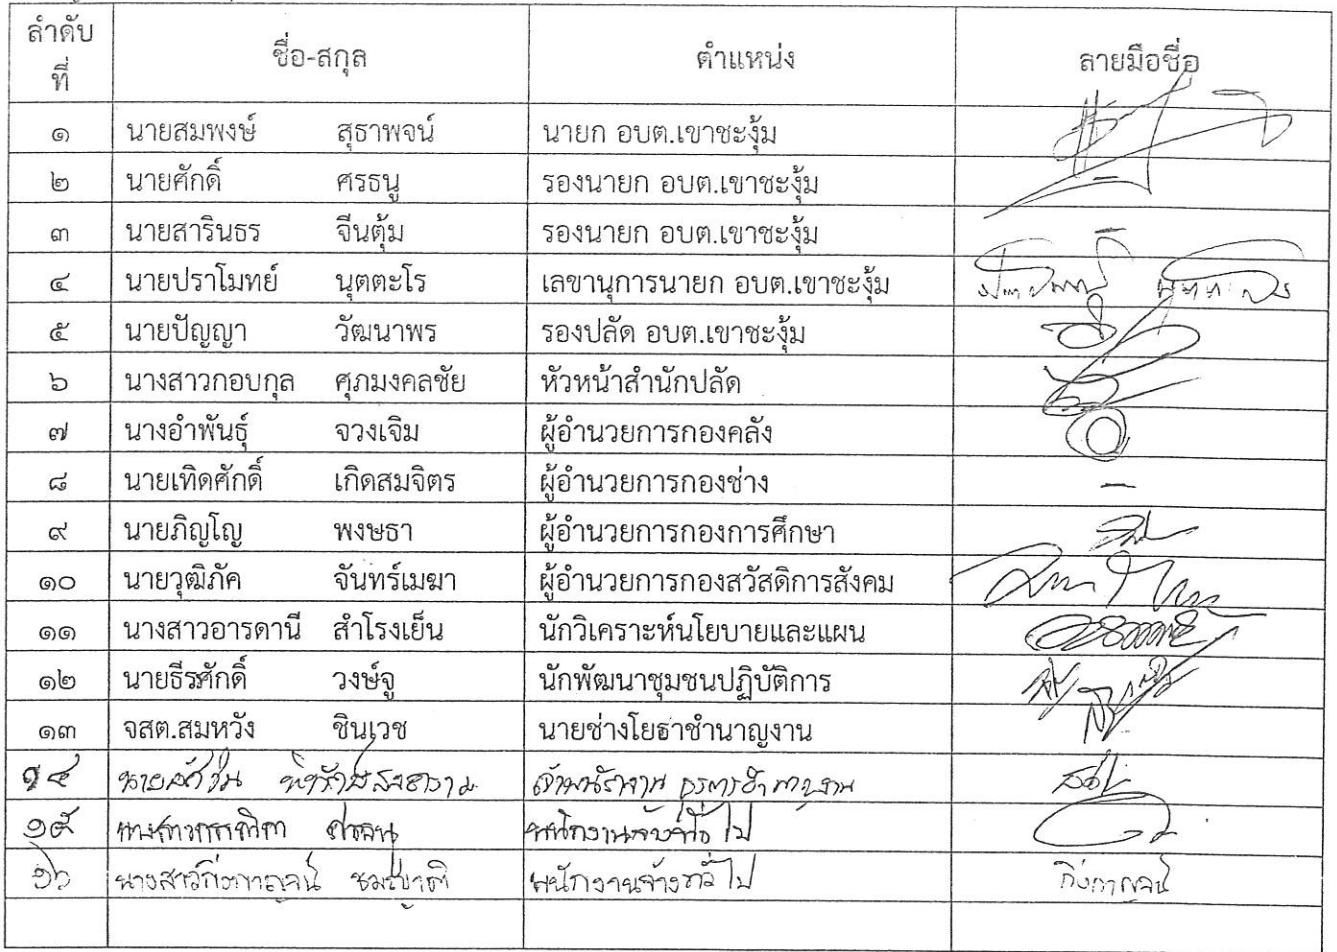 ลำดับ
ที่
ชื่อ-สกุล ตำแหน่ง ลายมือชื่อ
๑ นายสมพงษ์ สุธาพจน์ นายก อบต.เขาชะงุ้ม
๒ นายศักดิ์ ศรธนู รองนายก อบต.เขาชะงุ้ม
๓ นายสารินธร จีนตุ้ม รองนายก อบต.เขาชะงุ้ม
๔ นายปราโมทย์ นุตตะโร เลขานุการนายก อบต.เขาชะงุ้ม
๕ นายปัญญา วัฒนาพร รองปลัด อบต.เขาชะงุ้ม
๖ นางสาวกอบกุล ศุภมงคลชัย หัวหน้าสำนักปลัด
๗ นางอำพันธุ์ จวงเจิม ผู้อำนวยการกองคลัง
๘ นายเทิดศักดิ์ เกิดสมจิตร ผู้อำนวยการกองช่าง –
๙ นายภิญโญ พงษธา ผู้อำนวยการกองการศึกษา
๑๐ นายวุฒิภัค จันทร์เมฆา ผู้อำนวยการกองสวัสดิการสังคม
๑๑ นางสาวอารดานี สำโรงเย็น นักวิเคราะห์นโยบายและแผน
๑๒ นายธีรศักดิ์ วงษ์จู นักพัฒนาชุมชนปฏิบัติการ
๑๓ จสต.สมหวัง ชินเวช นายช่างโยธาชำนาญงาน
๑๔ พิทักษ์สงคราม เจ้าพนักงานธุรการชำนาญงาน
๑๕ พนักงานจ้างทั่วไป
๑๖ นางสาวกิ่งกาญจน์ ชมชาติ พนักงานจ้างทั่วไป กิ่งกาญจน์